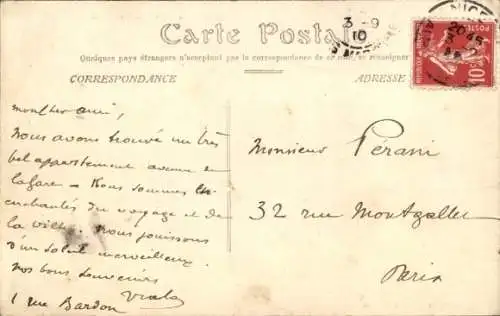 Carte Postale
Quelques pays étrangers n'acceptent pas la correspondance de ce côté, se renseigner
CORRESPONDANCE
ADRESSE
3-9
10
NICE
20 45
POSTES
10
mon cher ami,
Nous avons trouvé un très
bel appartement avenue de
la gare – Nous sommes
enchantés du voyage et de
la ville. Nous jouissons
d'un soleil merveilleux.
Nos bons souvenirs
1 rue Bardon
Monsieur Pérani
32 rue Montgallet
Paris